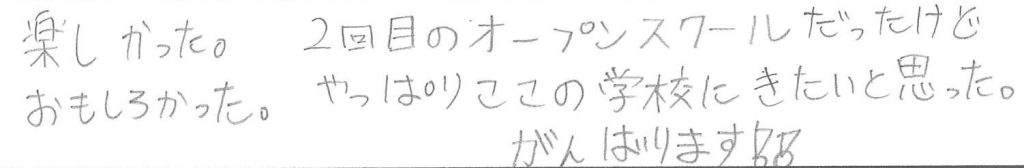 楽しかった。
おもしろかった。
2回目のオープンスクールだったけど
やっぱりここの学校にきたいと思った。
がんばります